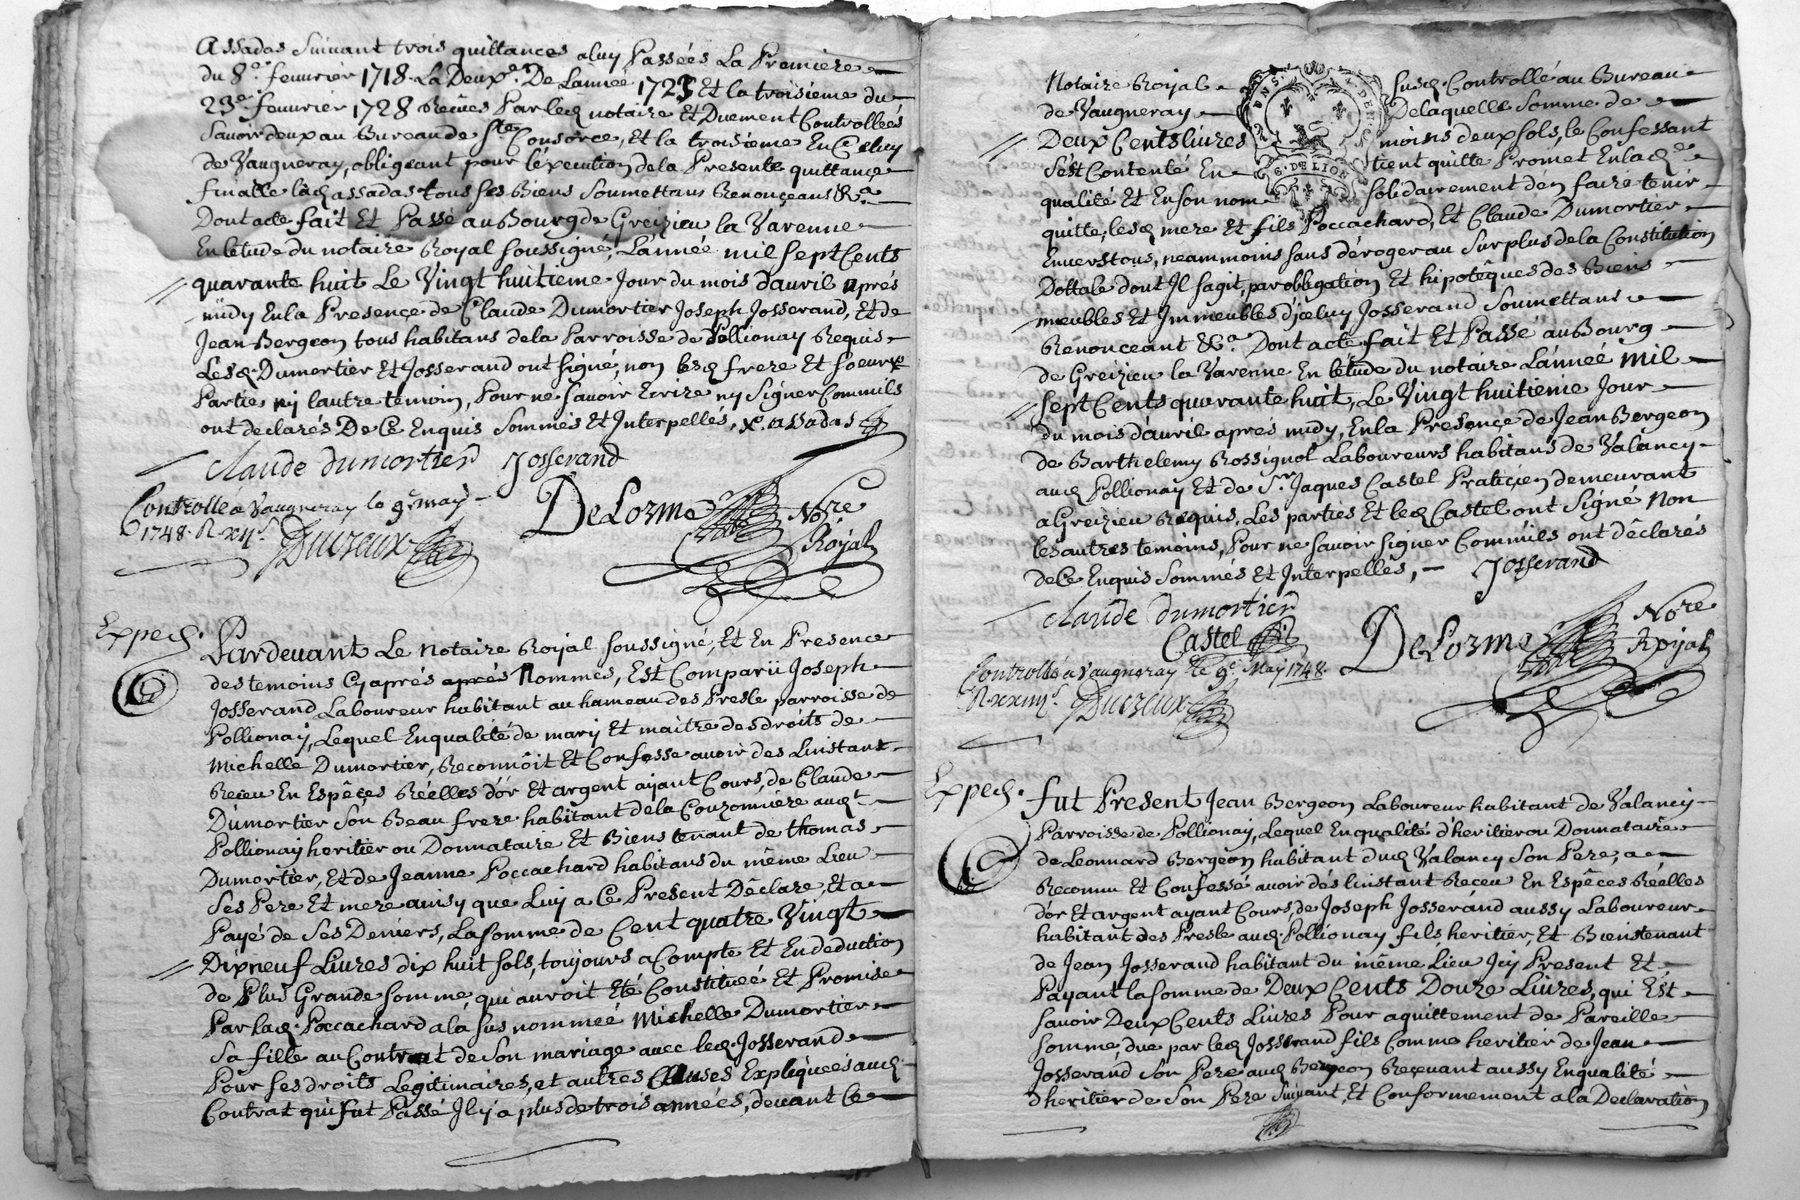 Assadas Suivant trois quittances aluy Passées La Premiere
du 8.e feuurier 1718. La Deuxe. De Lannée 1723 Et la troisieme du
23e. feuurier 1728 Reçues Par led notaire Et Duement Controllées
Savoir deux au Bureau de Ste. Consorce, Et la troisieme En Celuy
de Vaugneray, obligeant pour léxecution dela Presente quittance
finalle lad assadas tous ses Biens Soumettans Renonçeans &.a
Dont acte fait Et Passé au Bourg de Greizieu la Varenne
En létude du notaire Royal soussigné, Lannée mil sept Cents
quarante huit Le Vingt huitieme Jour du mois dauril aprés
midy Enla Presençe de Claude Dumortier Joseph Josserand, Et de
Jean Bergeon tous habitans dela Parroisse de Pollionay Requis
Lesd. Dumortier Et Josserand ont signé, non lesd frere Et soeur x
Partie nij lautre temoin, Pour ne savoir Ecrire ny Signer Commils
ont declarés De Ce Enquis Sommés Et Interpellés, x. assadas
Claude dumortier Josserand
Controllé a Vaugneray le 9e may
1748. R. xijs.
Ducreux
DeLorme Nore
Royal
Exped.
Pardevant Le Notaire Royal soussigné, Et En Presence
des temoins Cy aprés aprés Nommés, Est Comparü Joseph
Josserand Laboureur habitant au hameau des Presle parroisse de
Pollionay, Lequel Enqualité de mary Et maitre des droits de
Michelle Dumortier, Reconnôit Et Confesse auoir des Linstant
Reçeu En Espeçes Réelles dór Et argent ajant Cours, de Claude
Dumortier Son Beau frere habitant dela Couzonniere aud.t
Pollionay heritier ou Donnataire Et Biens tenant de thomas
Dumortier, Et de Jeanne Poccachard habitans du même Lieu
Ses Pere Et mere ainsy que Luy a Ce Present Déclare, Et a
Payé de Ses Deniers, La somme de Cent quatre Vingt
Dix neuf Liures dix huit sols, toujours a Compte Et En deduction
de Plus Grande somme, qui auroit Eté Constituée Et Promise
Par lad. Poccachard a la sus nommée Michelle Dumortier
Sa fille au Contrat de Son mariage auec led. Josserand
Pour ses droits Legitimaires, et autres Clauses Expliquées aud.
Contrat qui fut Passé Il y a plus de trois années, devant Ce
Notaire Royal Susd. Controllé au Bureau
de Vaugneray Delaquelle Somme de
Deux Cents liures moins deux sols, le Confessant
Sést Contenté En tient quitte Promet En lad.
qualité Et En son nom solidairement dén faire tenir
G. DE LION
quitte, lesd mere Et fils Poccachard, Et Claude Dumortier
Enuers tous, neammoins sans déroger au Surplus dela Constitution
Dottale dont Il sagit, par obligation Et hipotêques des Biens
meubles Et Immeubles djceluy Josserand Soumettans
Renonceant &.a Dont acte fait Et Passé au Bourg
de Greizieu la Varenne En létude du notaire Lannée Mil
sept Cents quarante huit, Le Vingt huitieme Jour
du mois dauril aprés midy, En la Presençe de Jean Bergeon
de Barthelemy Rossignol Laboureurs habitans de Valancy
aud Pollionay Et de Sr. Jaques Castel Praticien demeurant
a Greizieu Requis, Les parties Et led Castel ont Signé Non
les autres temoins, Pour ne savoir signer Commils ont dêclarés
de Ce Enquis Sommés Et Interpellés, Josserand
Claude dumortier
Castel
Controllé a Vaugneray le 9e. May 1748
Ducreux
DeLorme Nore
Royal
Exped.
fut Present Jean Bergeon Laboureur habitant de Valancy
Parroisse de Pollionay, Lequel Enqualité dheritier ou Donnataire
de Leonnard Bergeon habitant dud Valancy Son Pere, a
Reconnu Et Confessé auoir dés linstant Reçeu En Espêces Réelles
dór Et argent ayant Cours, de Joseph Josserand aussy Laboureur
habitant des Presle aud. Pollionay fils, heritier, Et Bienstenant
de Jean Josserand habitant du même Lieu Icy Present Et
Payant la somme de Deux Cents Douze Liures, qui Est
sauoir Deux Cents Liures Pour aquittement de Pareille
somme, due par led Josserand fils Comme heritier de Jean
Josserand Son Pere aud Bergeon Reçeuant aussy Enqualité
dheritier de Son Pere Suiuant Et Conformement a la Declaration